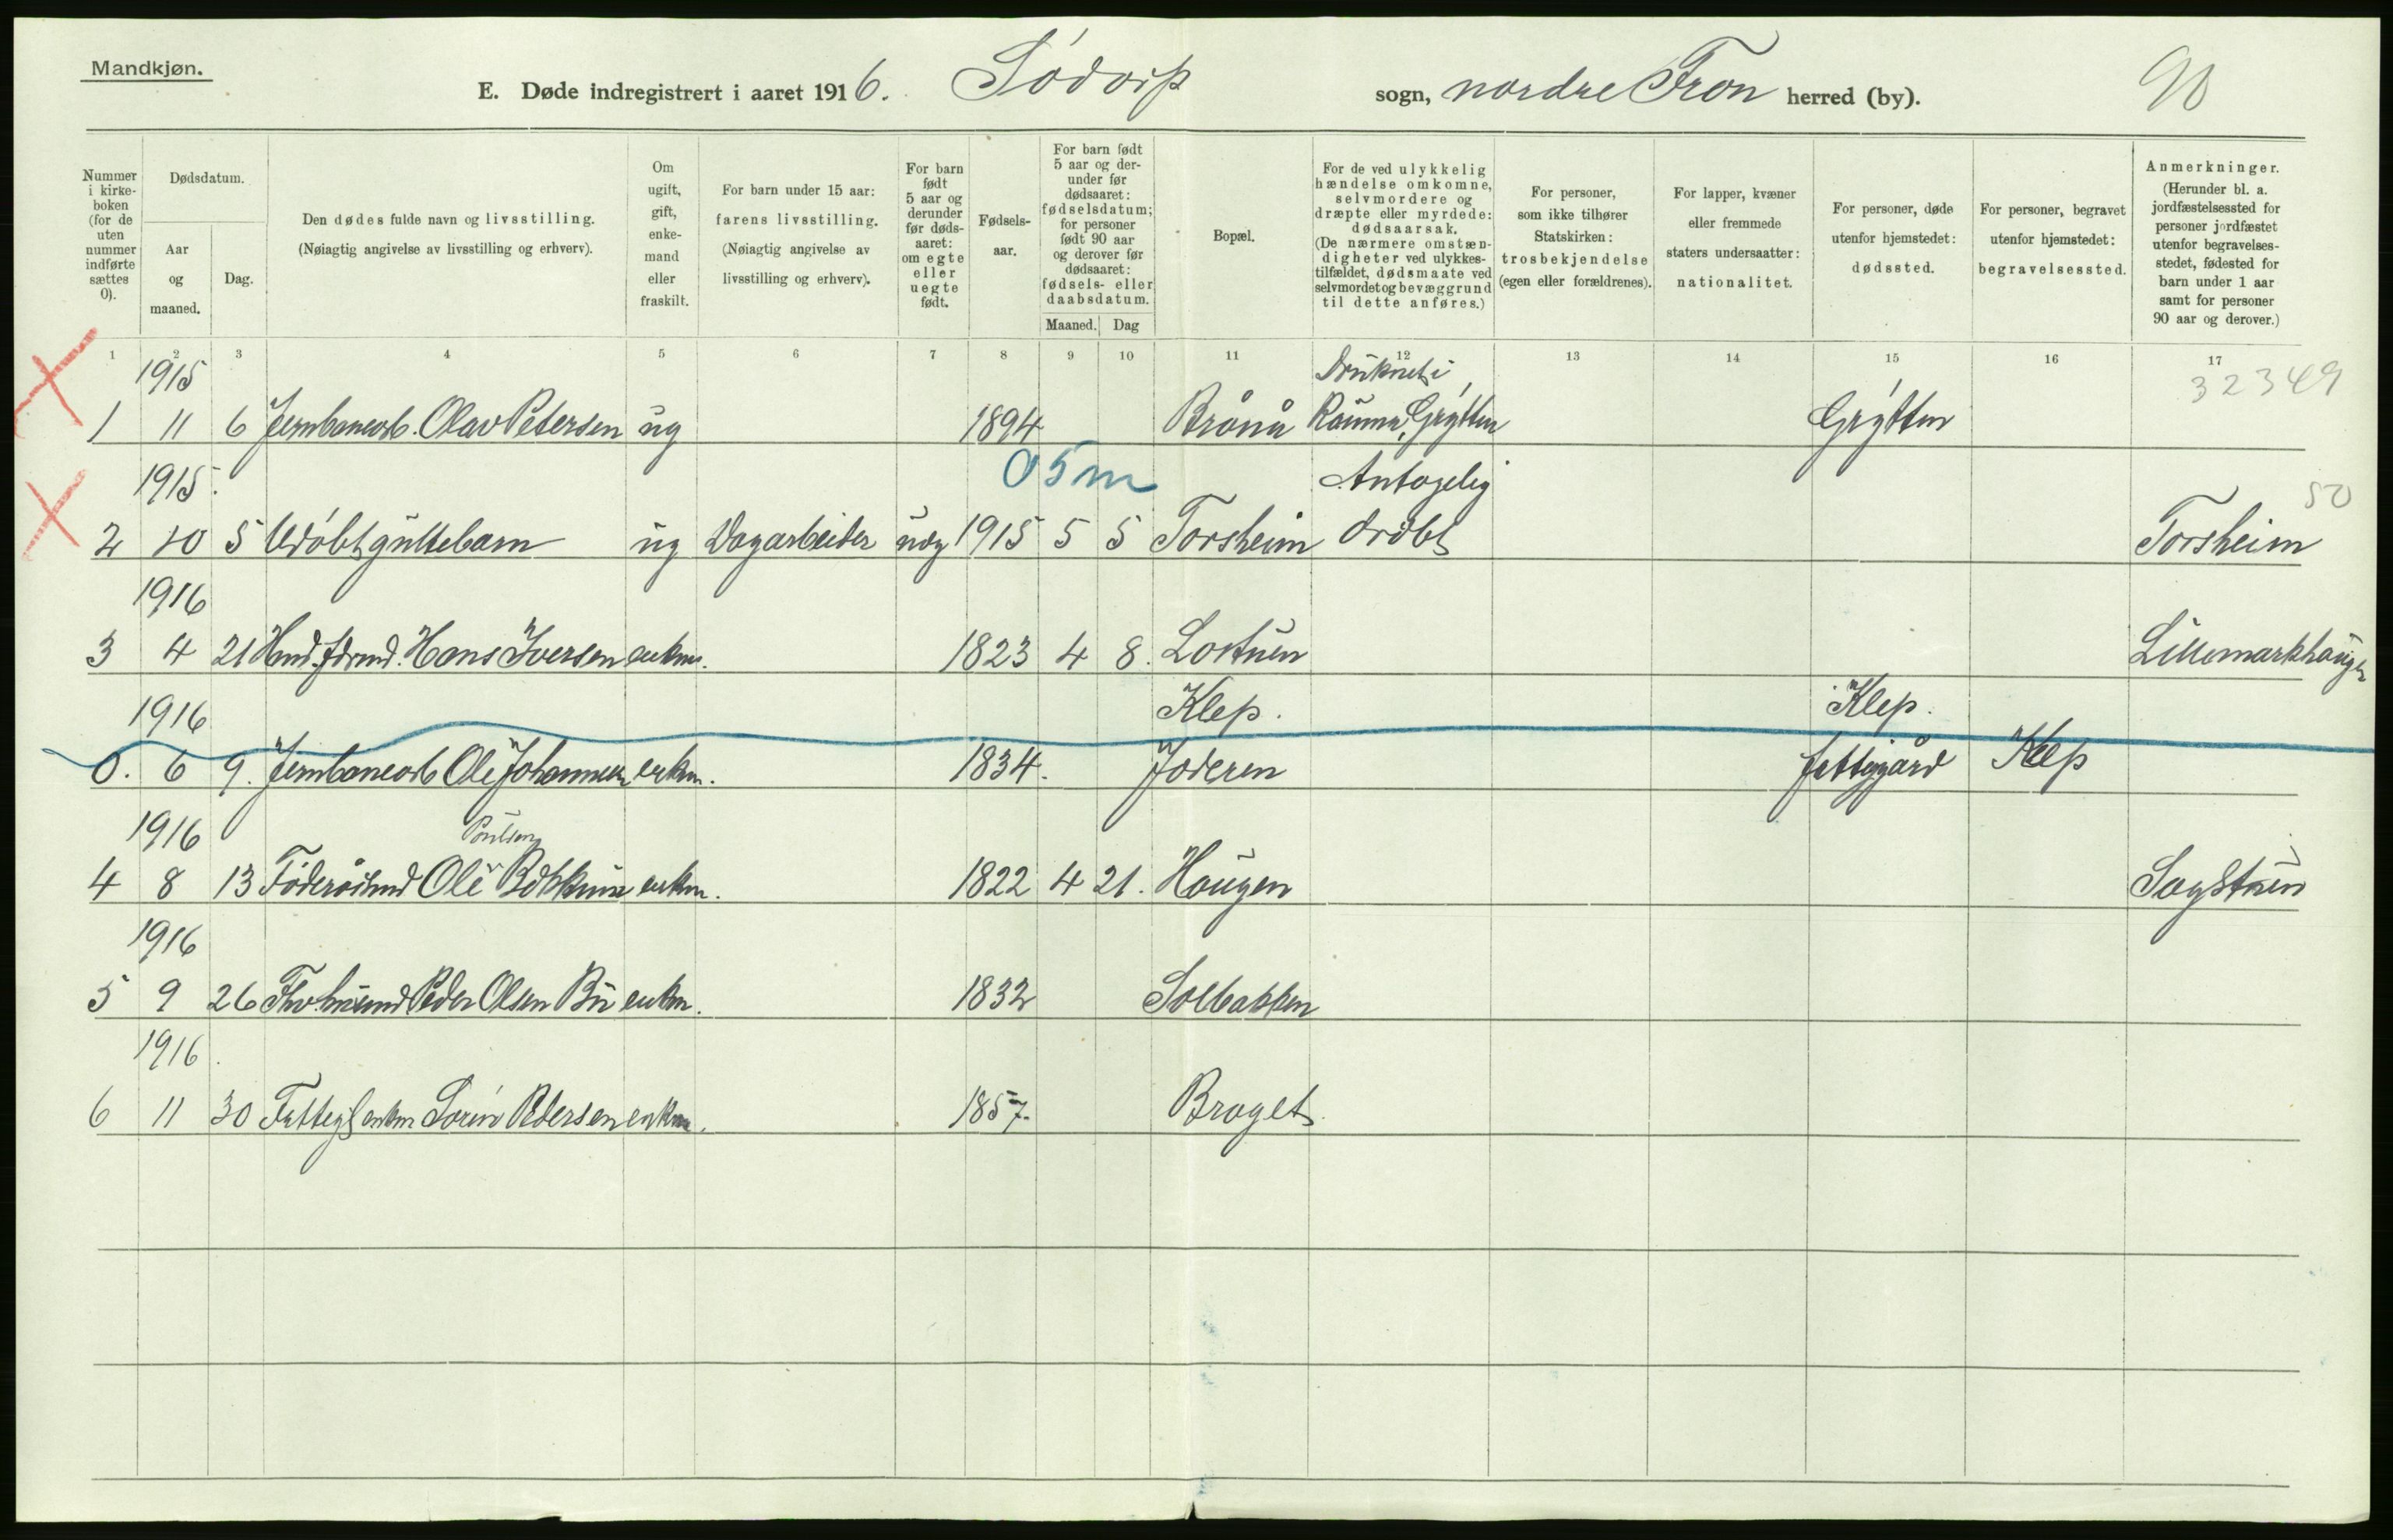 Mandkjøn.
E. Døde indregistrert i aaret 1916. Sødorp sogn, nordre Fron herred (by).
90
Nummer i kirke- boken (for de uten nummer indførte sættes 0).
Dødsdatum.
Aar og maaned.
Dag.
Den dødes fulde navn og livsstilling.
(Nøiagtig angivelse av livsstilling og erhverv).
Om ugift, gift, enke- mand eller fraskilt.
For barn under 15 aar: farens livsstilling.
(Nøiagtig angivelse av livsstilling og erhverv).
For barn født 5 aar og derunder før døds- aaret: om egte eller uegte født.
Fødsels- aar.
For barn født 5 aar og der- under før dødsaaret: fødselsdatum; for personer født 90 aar og derover før dødsaaret: fødsels- eller daabsdatum.
Maaned. Dag
Bopæl.
For de ved ulykkelig hændelse omkomne, selvmordere og dræpte eller myrdede: dødsaarsak.
(De nærmere omstæn- digheter ved ulykkes- tilfældet, dødsmaate ved selvmordet og bevæggrund til dette anføres.)
For personer, som ikke tilhører Statskirken: trosbekjendelse (egen eller forældrenes).
For lapper, kvæner eller fremmede staters undersaatter: nationalitet.
For personer, døde utenfor hjemstedet: dødssted.
For personer, begravet utenfor hjemstedet: begravelsessted.
Anmerkninger.
(Herunder bl. a. jordfæstelsessted for personer jordfæstet utenfor begravelses- stedet, fødested for barn under 1 aar samt for personer 90 aar og derover.)
1 2 3 4 5 6 7 8 9 10 11 12 13 14 15 16 17
1915 Druknet i 32349
1 11 6 Jernbanearb. Olav Petersen ug 1894 Brånå Rauma, Grytten Grytten
1915. 05m Antagelig 50
2 10 5 Udøbt guttebarn ug Dagarbeider uæg 1915 5 5 Forsheim dræbt Forsheim
1916
3 4 21 Hans Iversen enkm. 1823 4 8. Lostuen Lillemarkhaugen
1916 Klep. Klep.
0. 6 9. Jernbanearb Ole Johannesen enkm. 1834. Jæderen fattiggård Klep
1916 Poulsen
4 8 13 Føderådsmd Ole enkm. 1822 4 21. Haugen Sagstuen
1916
5 9 26 Peder Olsen Bu enkm. 1832 Solbakken
1916.
6 11 30 enkm Søren Pedersen enkm. 1857. Braget.